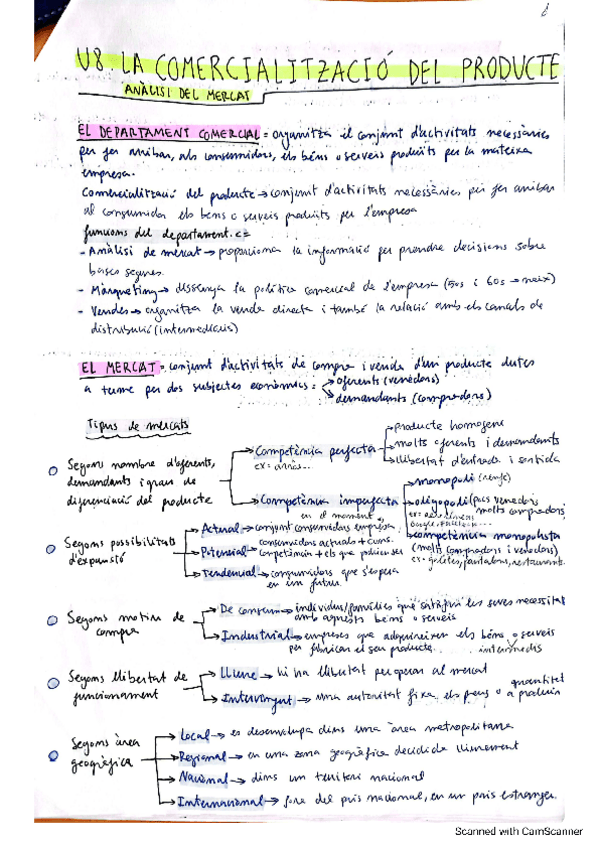 U8. LA COMERCIALITZACIÓ DEL PRODUCTE
ANÀLISI DEL MERCAT
EL DEPARTAMENT COMERCIAL = organitza el conjunt d'activitats necessàries
per fer arribar, als consumidors, els béns o serveis produïts per la mateixa
empresa.
Comercialització del producte → conjunt d'activitats necessàries per fer arribar
al consumidor els bens o serveis produïts per l'empresa
funcions del departament. c =
- Anàlisi de mercat → proporciona la informació per prendre decisions sobre
bases segures.
- Màrqueting → dissenya la política comercial de l'empresa (50s i 60s → neix)
- Vendes → organitza la venda directa i també la relació amb els canals de
distribució (intermediaris)
EL MERCAT = conjunt d'activitats de compra i venda d'un producte dutes
a terme per dos subjectes econòmics: → oferents (venedors)
→ demandants (compradors)
Tipus de mercats
Segons nombre d'oferents,
demandants i grau de
diferenciació del producte
Competència perfecta
ex = arròs...
→ producte homogeni
→ molts oferents i demandants
→ llibertat d'entrada i sortida
Competència imperfecta
→ monopoli (renfe)
→ oligopoli (pocs venedors,
molts compradors)
→ competència monopolista
(molts compradors i venedors)
ex = galetes, pantalons, restaurants.
Segons possibilitats
d'expansió
en el moment
Actual → conjunt consumidors empresa
Potencial → consumidors actuals + cons.
competència + els que podrien ser
Tendencial → consumidors que s'espera
en un futur.
Segons motiu de
compra
De consum → individus/famílies que satisfan les seves necessitats
amb aquests béns o serveis
Industrial → empreses que adquireixen els béns o serveis
per fabricar el seu producte. intermedis
Segons llibertat de
funcionament
Lliure → hi ha llibertat per operar al mercat
Intervingut → una autoritat fixa els preus o quantitat
a produir
Segons àrea
geogràfica
Local → es desenvolupa dins una àrea metropolitana
Regional → en una zona geogràfica decidida lliurement
Nacional → dins un territori nacional
Internacional → fora del país nacional, en un país estranger.
Scanned with CamScanner